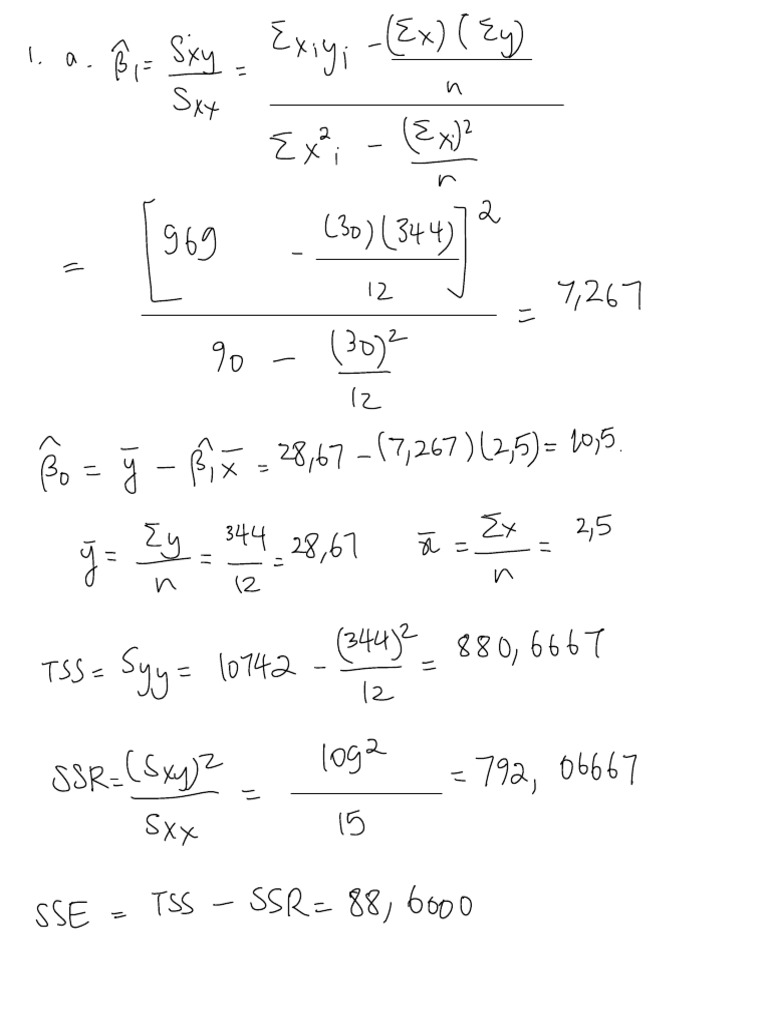 1. a. β̂₁ = Sxy / Sxx = (Σxᵢyᵢ − (Σx)(Σy) / n) / (Σx²ᵢ − (Σxᵢ)² / n)
= [969 − (30)(344) / 12]² / (90 − (30)² / 12) = 7,267
β̂₀ = ȳ − β̂₁x̄ = 28,67 − (7,267)(2,5) = 10,5.
ȳ = Σy / n = 344 / 12 = 28,67 x̄ = Σx / n = 2,5
TSS = Syy = 10742 − (344)² / 12 = 880,6667
SSR = (Sxy)² / Sxx = 109² / 15 = 792,06667
SSE = TSS − SSR = 88,6000